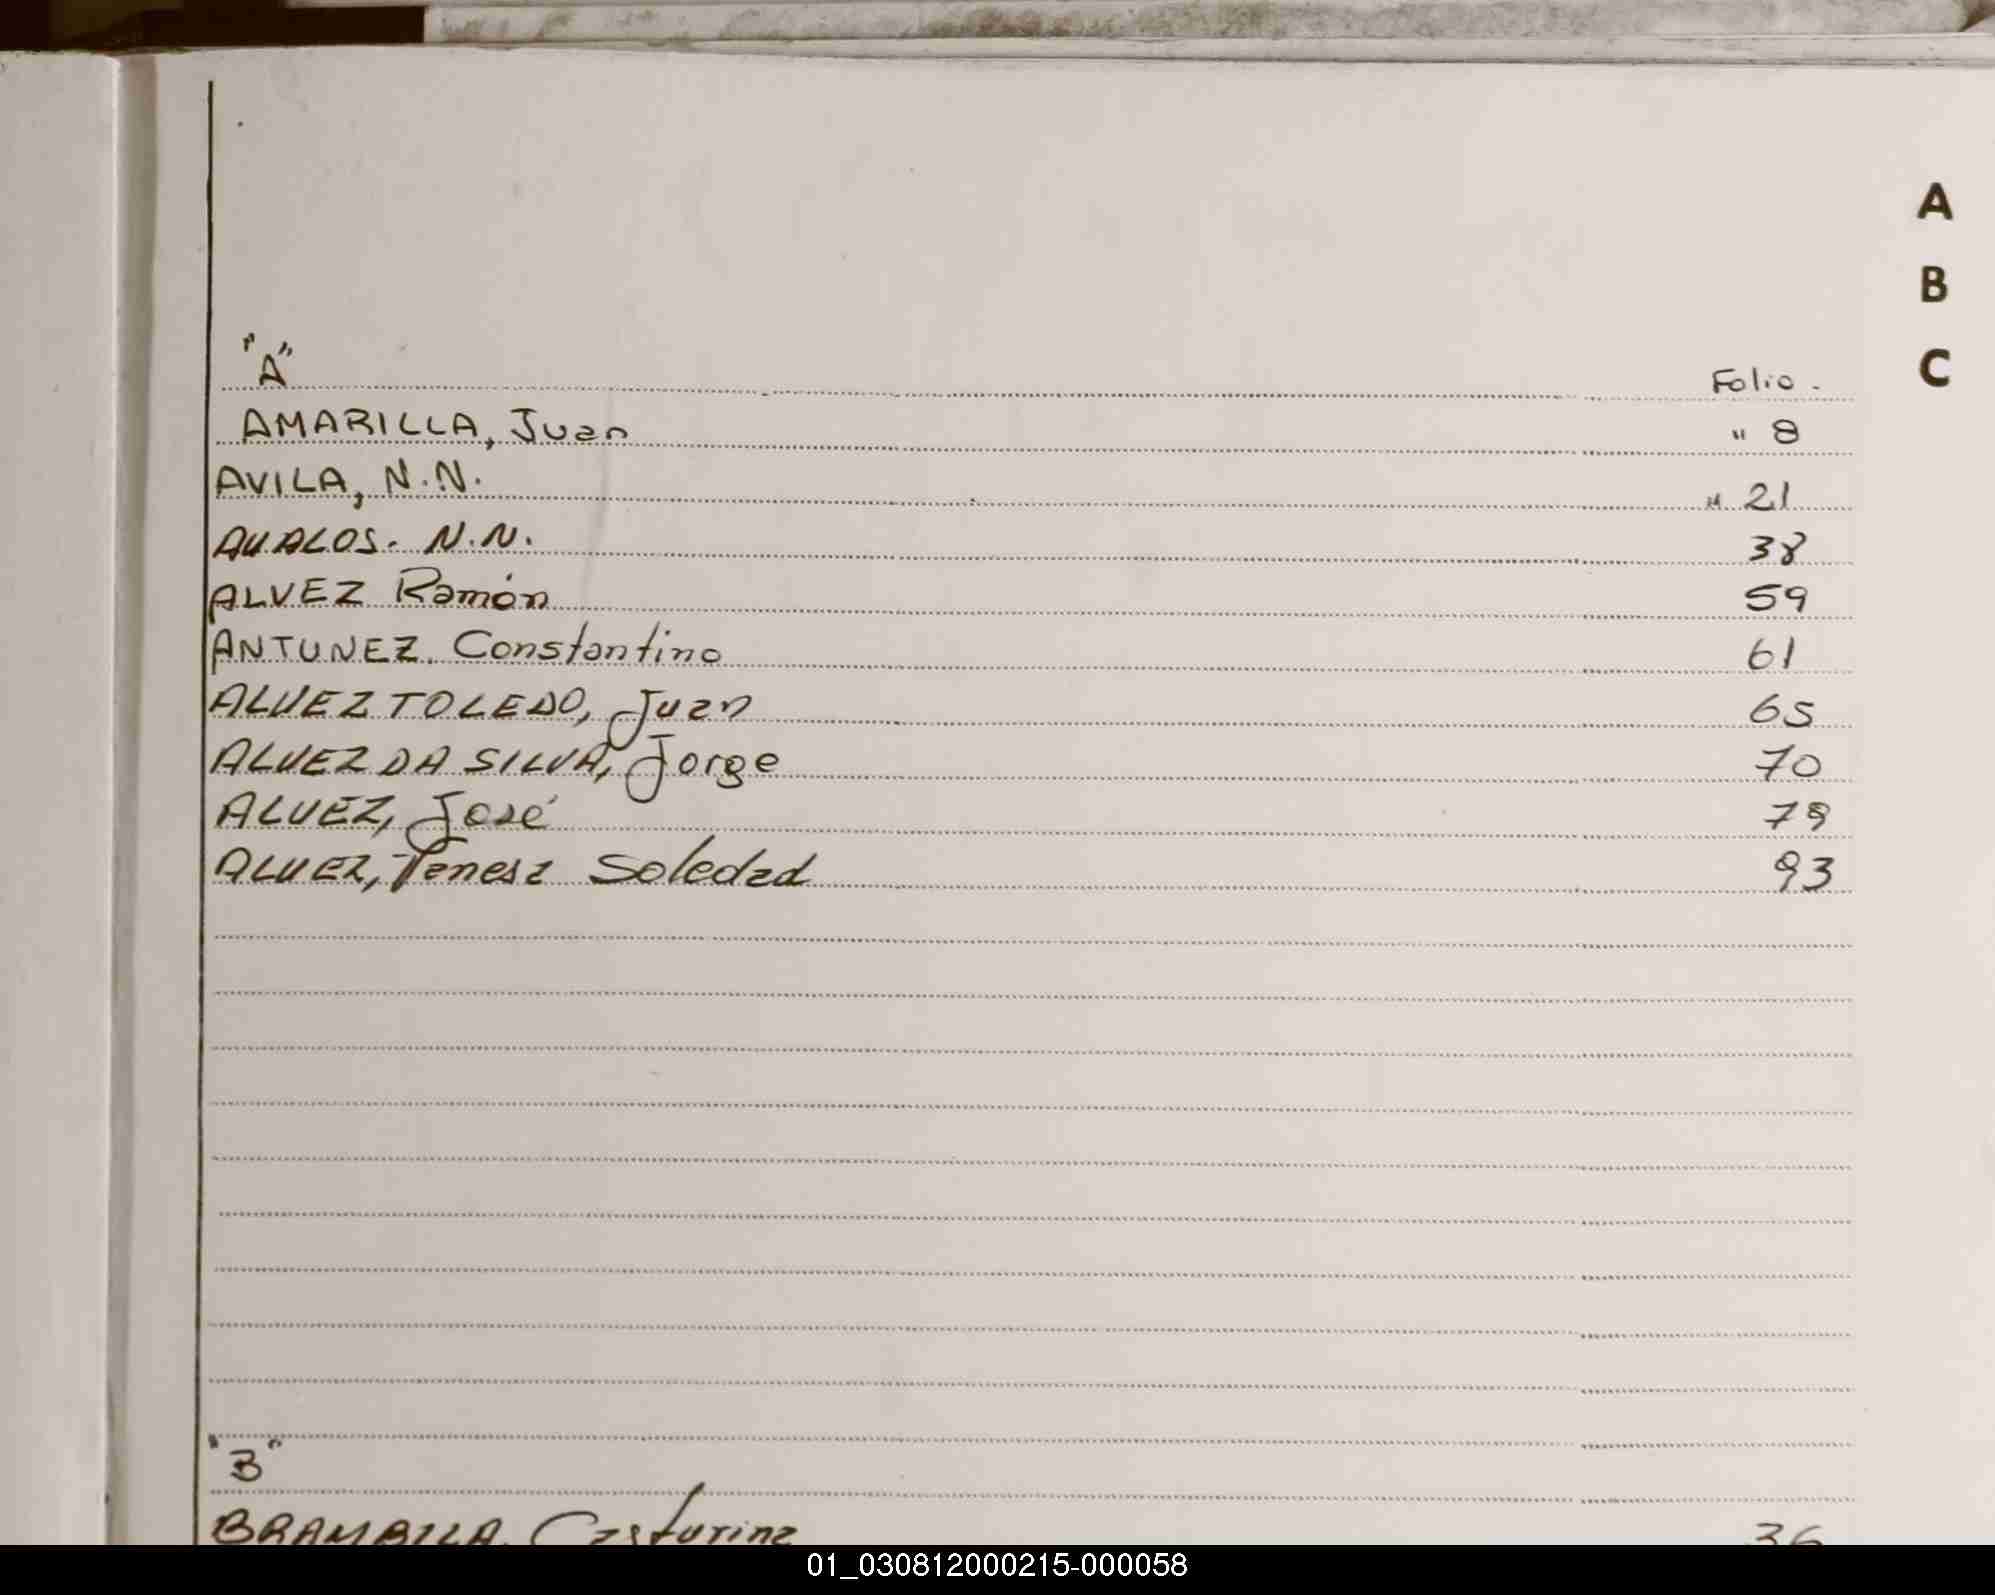 A
B
C
"A" Folio.
AMARILLA, Juan " 8
AVILA, N.N. " 21
AVALOS. N.N. 38
ALVEZ Ramón 59
ANTUNEZ. Constantino 61
ALVEZ TOLEDO, Juan 65
ALVEZ DA SILVA, Jorge 70
ALVEZ, José 79
ALVEZ, Vanesa Soledad 93
"B"
BRAMBILLA, 36
01_030812000215-000058